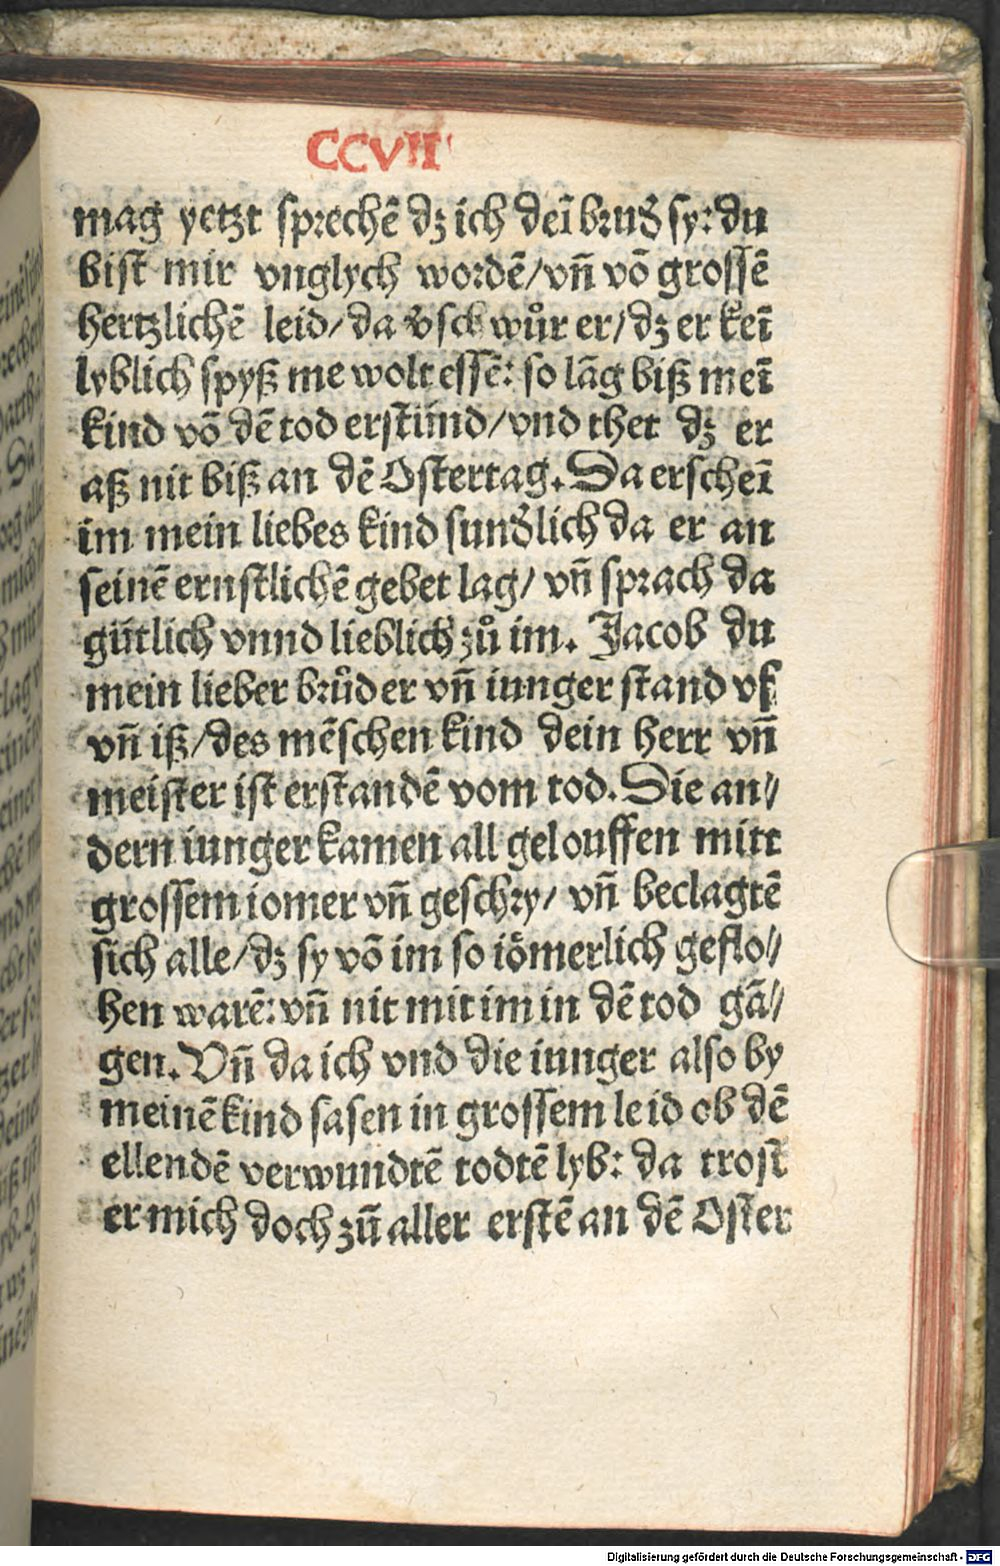 CCVII
mag yetzt sprechē dz ich deī brud̕ sy: du
bist mir vnglych wordē/vn̄ vō grossē
hertzlichē leid/da v̕schwůr er/dz er keī
lyblich spyß me wolt essē: so lāg biß meī
kind vō dē tod erstünd/vnd thet dz er
aß nit biß an dē Ostertag. Da erscheī
im mein liebes kind sund̕lich da er an
seinē ernstlichē gebet lag/ vn̄ sprach da
gütlich vnnd lieblich zů im. Jacob du
mein lieber brůder vn̄ iunger stand vf
vn̄ iß/des mēschen kind dein herr vn̄
meister ist erstandē vom tod. Die an//
dern iunger kamen all gelouffen mitt
grossem iomer vn̄ geschry/ vn̄ beclagtē
sich alle/dz sy vō im so iömerlich geflo//
hen warē: vn̄ nit mit im in dē tod gā//
gen. Vn̄ da ich vnd die iunger also by
meinē kind sasen in grossem leid ob dē
ellendē verwundtē todtē lyb: da trost
er mich doch zů aller erstē an dē Oster
Digitalisierung gefördert durch die Deutsche Forschungsgemeinschaft - DFG